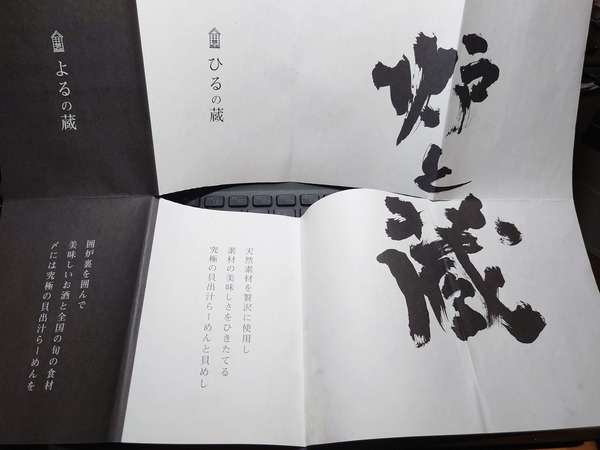 炉と蔵
ひるの蔵
天然素材を贅沢に使用し
素材の美味しさをひきたてる
究極の貝出汁らーめんと貝めし
よるの蔵
囲炉裏を囲んで
美味しいお酒と全国の旬の食材
〆には究極の貝出汁らーめんを